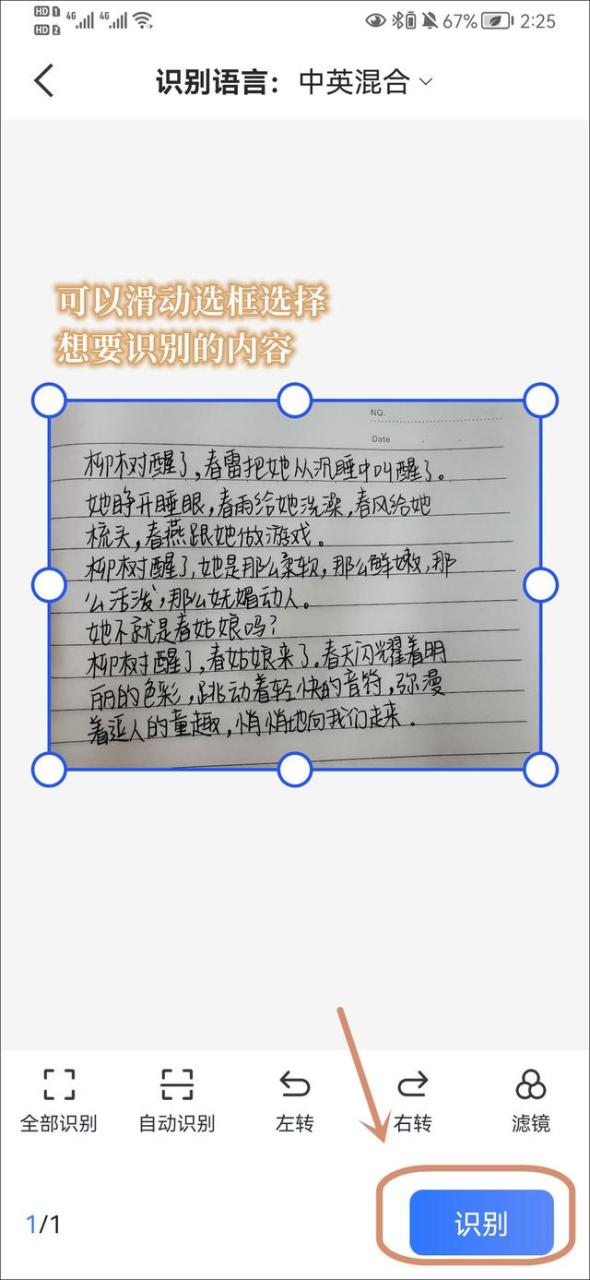 HD 1 4G 4G 67% 2:25
HD 2
识别语言: 中英混合
可以滑动选框选择
想要识别的内容
NO.
Date
柳树醒了,春雷把她从沉睡中叫醒了。
她睁开睡眼,春雨给她洗澡,春风给她
梳头,春燕跟她做游戏。
柳树醒了,她是那么柔软,那么鲜嫩,那
么活泼,那么妩媚动人。
她不就是春姑娘吗?
柳树醒了,春姑娘来了。春天闪耀着明
丽的色彩,跳动着轻快的音符,弥漫
着逗人的童趣,悄悄地向我们走来.
全部识别 自动识别 左转 右转 滤镜
1/1 识别